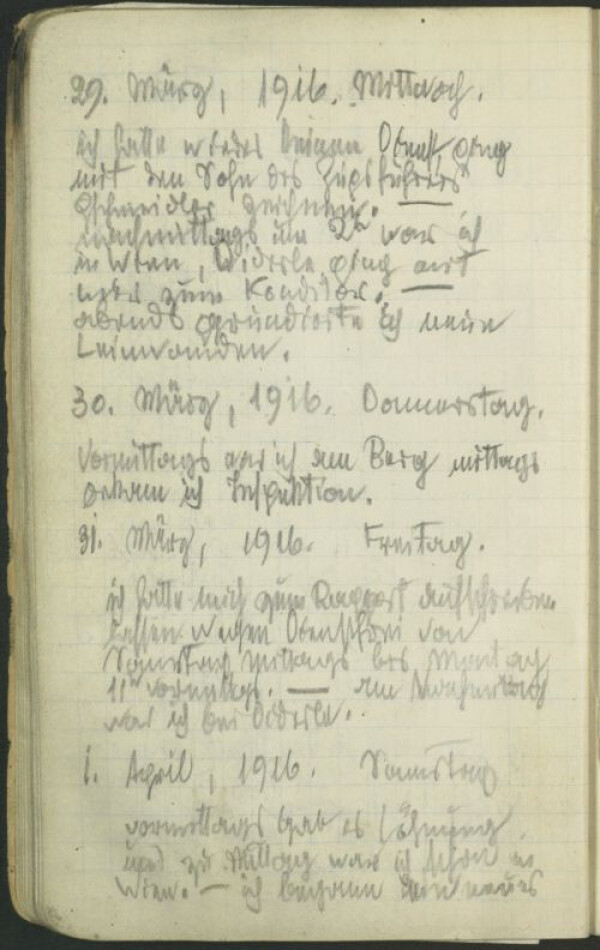 29. März, 1916. Mittwoch.
ich hatte wieder keinen Dienst, ging
mit dem Sohn des Zugsführers
Gschneidler zeichnen. —
nachmittags um 2h war ich
in Wien, Widerle ging mit
zum Konditor. —
abends grundierte ich neue
Leinwanden.
30. März, 1916. Donnerstag.
Vormittags war ich am Berg mittags
bekam ich Inspektion.
31. März, 1916. Freitag.
ich hatte mich zum Rapport aufschreiben
lassen wegen Dienstfrei von
Samstag mittags bis Montag
11h vormittags. — am Nachmittag
war ich bei
1. April, 1916. Samstag
vormittags gab es Löhnung
und zu Mittag war ich schon in
Wien. — ich begann mein neues